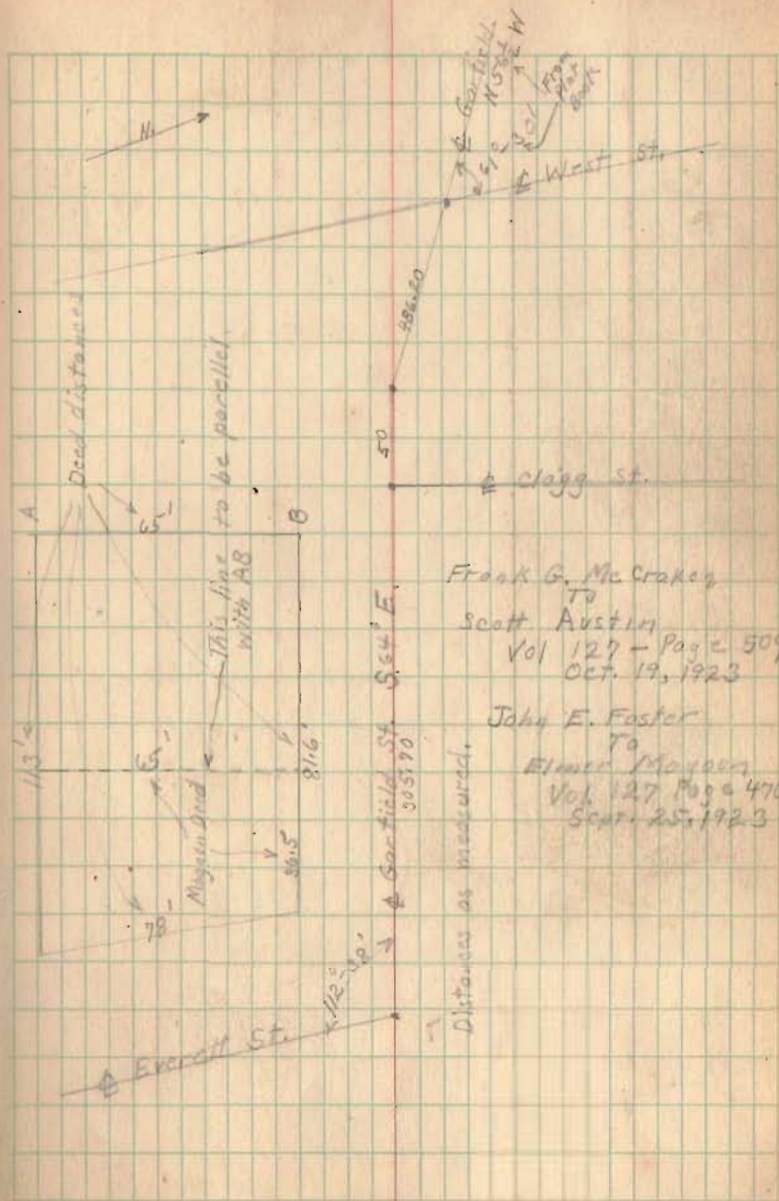 N.
℄ Garfield
N 56½ W
61° - 30'
From
Plat
Book
℄ West St.
486.20
Deed distances
A
113'~
65'
This line to be parellel
with AB
B
50
℄ Clagg St.
65'
Magoon Deed
81.6'
36.5'
78'
℄ Garfield St. S 64° E
305.90
Distances as measured.
112° - 38'
℄ Everett St.
Frank G. Mc Craken
To
Scott Austin
Vol 127 - Page 509
Oct. 19, 1923
John E. Foster
To
Elmer Magoon
Vol. 127 Page 470
Sept. 25, 1923